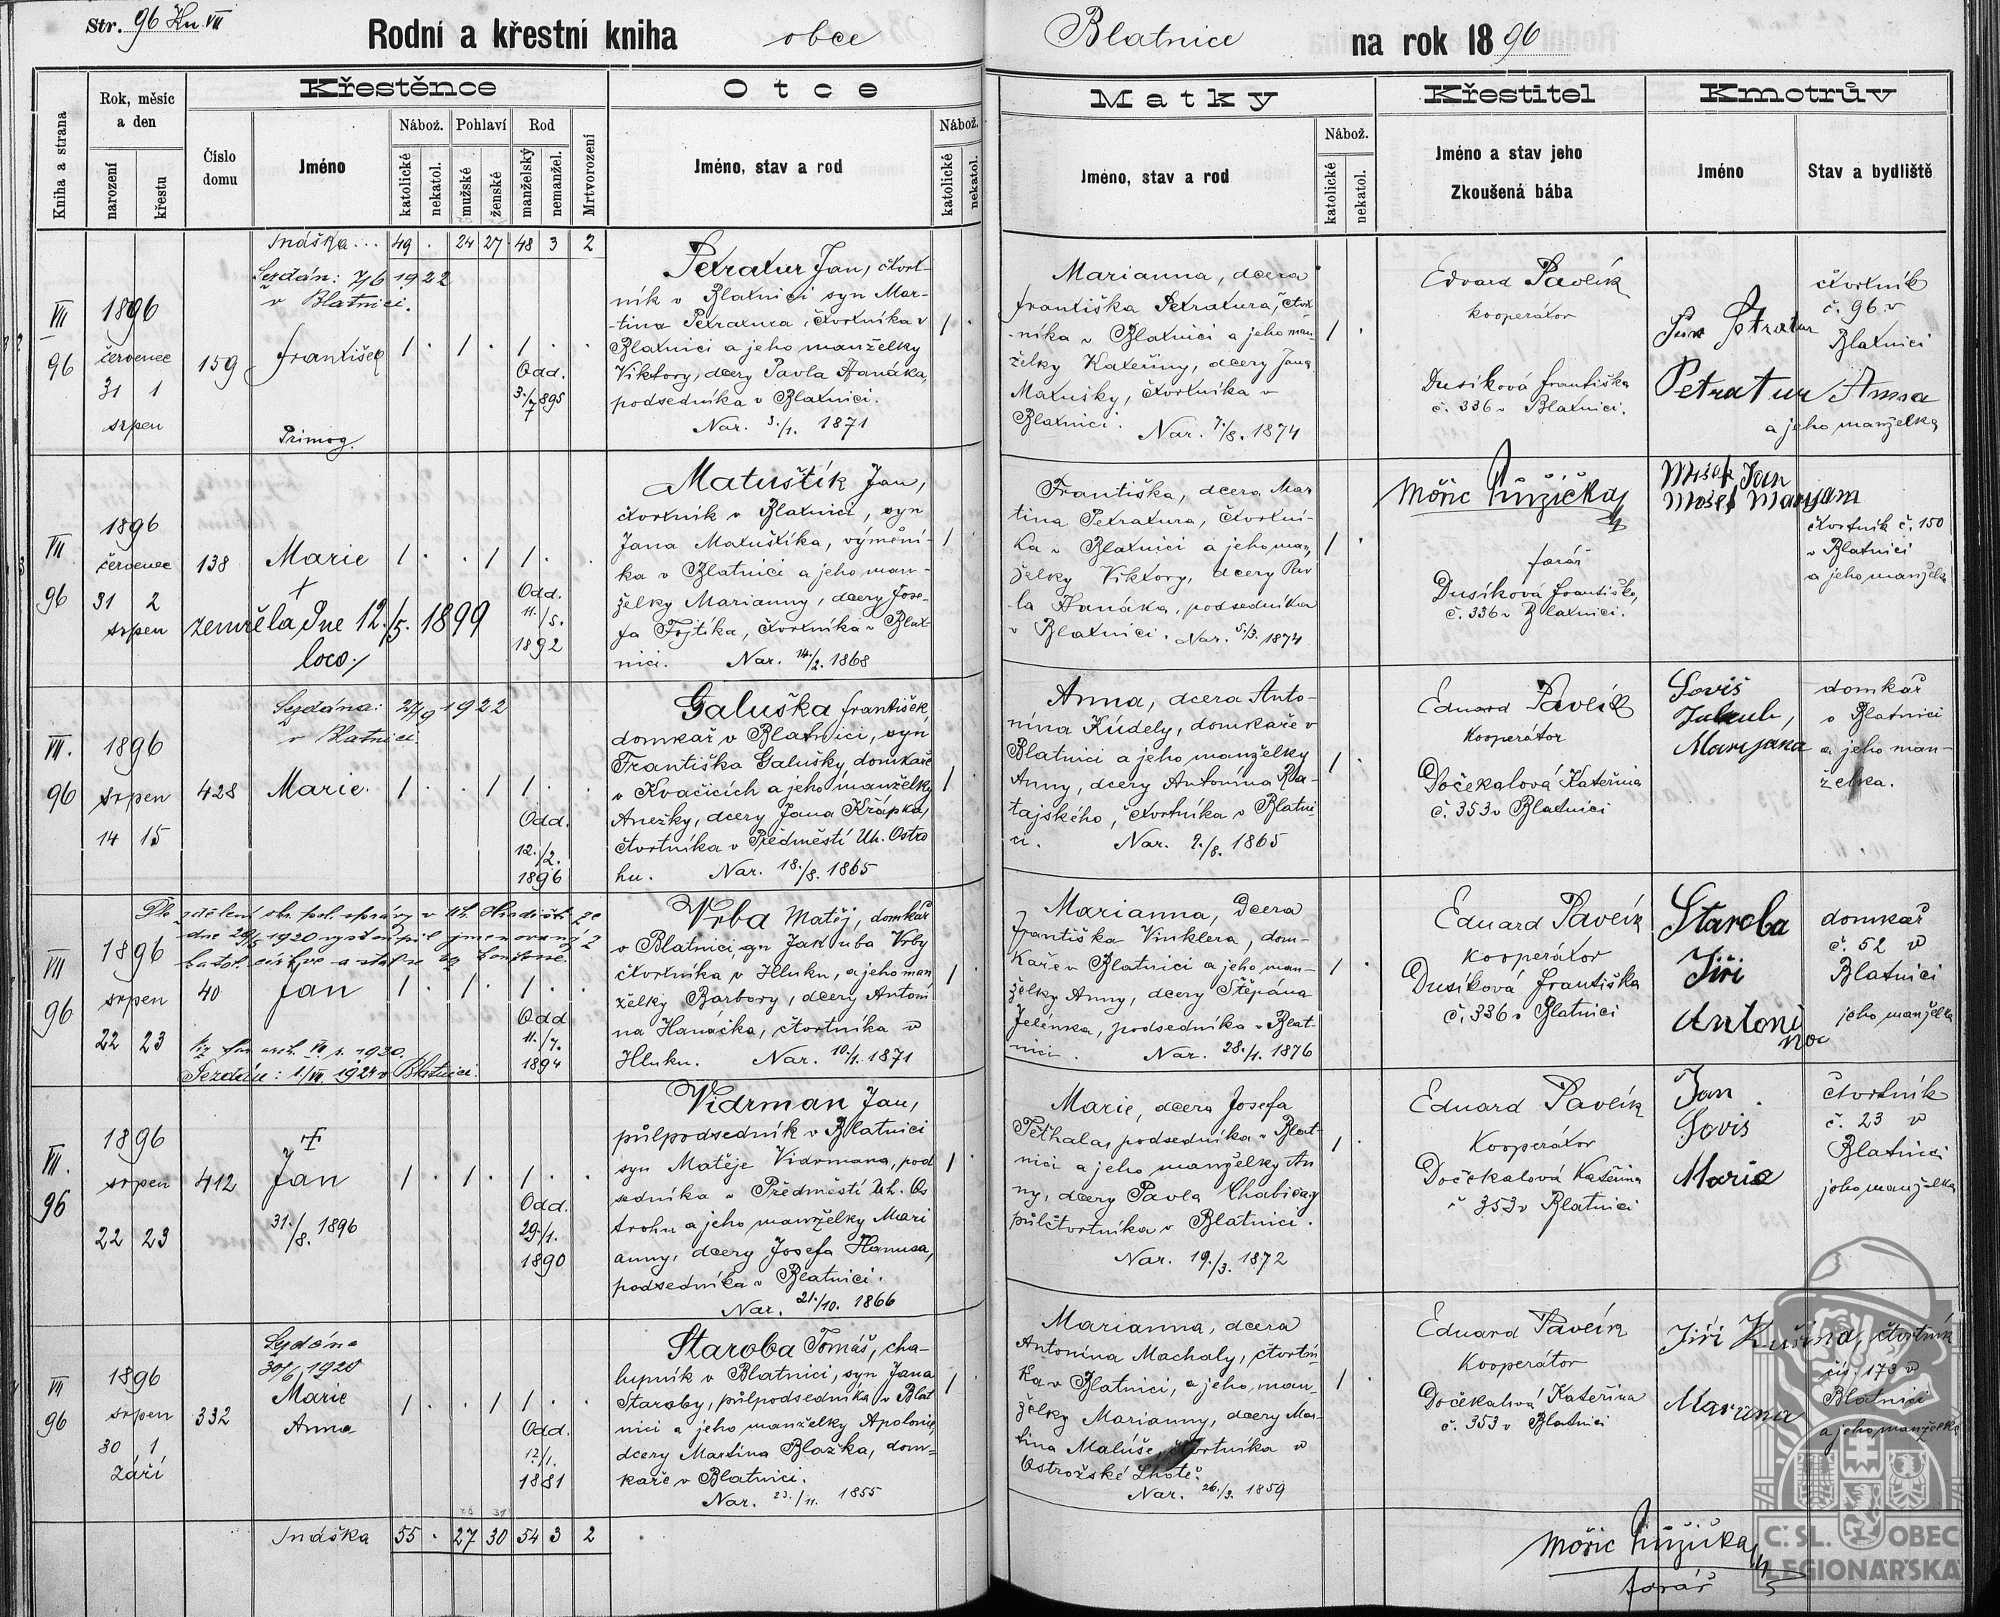 Str. 96 Kn. VII
Rodní a křestní kniha obce
Blatnice na rok 1896
Kniha a strana
Rok, měsíc a den
narození
křestu
Číslo domu
Křestěnce
Jméno
Nábož.
katolické
nekatol.
Pohlaví
mužské
ženské
Rod
manželský
nemanžel.
Mrtvorození
Otce
Jméno, stav a rod
Nábož.
katolické
nekatol.
Matky
Jméno, stav a rod
Nábož.
katolické
nekatol.
Křestitel
Jméno a stav jeho
Zkoušená bába
Kmotrův
Jméno
Stav a bydliště
49 . 24 27 48 3 2
VII
96
1896
červenec
31 1
srpen
159
Sezdán: 7/6 1922
v Blatnici.
František
Primog.
1 . 1 . 1 . .
Odd.
1895
Petratur Jan, čtvrt-
ník v Blatnici syn Mar-
-tina Petratura, čtvrtníka v
Blatnici a jeho manželky
Viktory, dcery Pavla Hanáka,
podsedníka v Blatnici.
Nar. 3./1. 1871
1 .
Marianna, dcera
Františka Petratura, čtvr
-níka v Blatnici a jeho man-
želky Kateřiny, dcery Jana
Matušky, čtvrtníka v
Blatnici. Nar. 7./8. 1874
1 .
Edvard Pavlík
kooperátor
Dusíková Františka
č. 336 v Blatnici.
Petratur
Petratur Anna
čtvrtník
č. 96 v
Blatnici
a jeho manželka
VII
96
1896
červenec
31 2
srpen
138
Marie
+
zemřela dne 12./5. 1899
loco./
1 . . 1 1 . .
Odd.
11./5.
1892
Matuštík Jan,
čtvrtník v Blatnici, syn
Jana Matuštíka, výmění-
ka v Blatnici a jeho man-
želky Marianny, dcery Jose-
fa Fojtíka, čtvrtníka v Blat-
nici. Nar. 14./2. 1868
1 .
Františka, dcera Mar
tina Petratura, čtvrtní-
ka v Blatnici a jeho man
želky Viktory, dcery Pav
-la Hanáka, podsedníka
v Blatnici. Nar. 5./3. 1874
1 .
Mořic Růžička
farář
Dusíková Františka,
č. 336 v Blatnici.
Jan
Maryam
čtvrtník č. 150
v Blatnici
a jeho manželka
VII.
96
1896
srpen
14 15
428
Sezdána: 27/9 1922
v Blatnici.
Marie.
1 . . 1 1 . .
Odd.
12./2.
1896
Galuška František,
domkář v Blatnici, syn
Františka Galušky domkáře
v Kvačicích a jeho manželky
Anežky, dcery Jana Křápka,
čtvrtníka v Předměstí Uh. Ostro
hu. Nar. 18./8. 1865
1 .
Anna, dcera Anto-
nína Kúdely, domkaře v
Blatnici a jeho manželky
Anny, dcery Antonína Ra-
tajského, čtvrtníka v Blatni-
ci. Nar. 2./8. 1865
1 .
Eduard Pavlík
Kooperátor
Dočekalová Kateřina
č. 353 v Blatnici
Soviš
Jakub,
Maryana
domkář
v Blatnici
a jeho man-
želka.
VII
96
1896
srpen
22 23
40
Dle sdělení okr. pol. správy v Uh. Hradišti ze
dne 1920 vystoupil jmenovaný z
katol. církve a stal se bez konfesse.
Jan
1930.
Sezdán: 1/VII. 1924 v Blatnici.
1 . 1 . 1 . .
Odd
11./7.
1894
Vrba Matěj, domkář
v Blatnici, syn Jakuba Vrby
čtvrtníka v Hluku, a jeho man
želky Barbory, dcery Antoní
na Hanáčka, čtvrtníka v
Hluku. Nar. 10./1. 1871
1 .
Marianna, Dcera
Františka Vinklera, dom-
kaře v Blatnici a jeho man-
želky Anny, dcery Štěpána
Jelénka, podsedníka v Blat-
nici. Nar. 28./1. 1876
1 .
Eduard Pavlík
kooperátor
Dusíková Františka
č. 336 v Blatnici
Staroba
Jiří
Antoni
noc
domkář
č. 52 v
Blatnici
jeho manželka
VII.
96
1896
srpen
22 23
412
+
Jan
31./8. 1896
1 . 1 . 1 . .
Odd.
29./1.
1890
Vidrman Jan,
půlpodsedník v Blatnici
syn Matěje Vidrmana, pod
sedníka v Předměstí Uh. Os
trohu a jeho manželky Mari
anny, dcery Josefa Hanusa,
podsedníka v Blatnici.
Nar. 21./10. 1866
1 .
Marie, dcera Josefa
Pěthala, podsedníka v Blat-
nici a jeho manželky An
ny, dcery Pavla Chabičay
půlčtvrtníka v Blatnici.
Nar. 19./3. 1872
1 .
Eduard Pavlík
Kooperátor
Dočekalová Kateřina
č 353 v Blatnici
Jan
Soviš
Marie
čtvrtník
č. 23 v
Blatnici
jeho manželka
VII
96
1896
srpen
30 1
září
332
Sezdána
30/6 1920
Marie
Anna
1 . . 1 1 . .
Odd.
17/1.
1881
Staroba Tomáš, cha-
lupník v Blatnici, syn Jana
Staroby, půlpodsedníka v Blat
nici a jeho manželky Apolonie,
dcery Martina Blažka, dom-
kaře v Blatnici.
Nar. 23./11. 1855
1 .
Marianna, dcera
Antonína Machaly, čtvrtní-
ka v Blatnici, a jeho man-
želky Marianny, dcery Mar-
tina Maluše čtvrtníka v
Ostrožské Lhotě.
Nar. 26./3. 1859
1 .
Eduard Pavlík
Kooperátor
Dočekalová Kateřina
č. 353 v Blatnici
Jiří
Maryana
čtvrtník
čís. 173 v
Blatnici
a jeho manželka
55 . 27 30 54 3 2
Mořic Růžička
farář
Č. SL. OBEC
LEGIONÁŘSKÁ